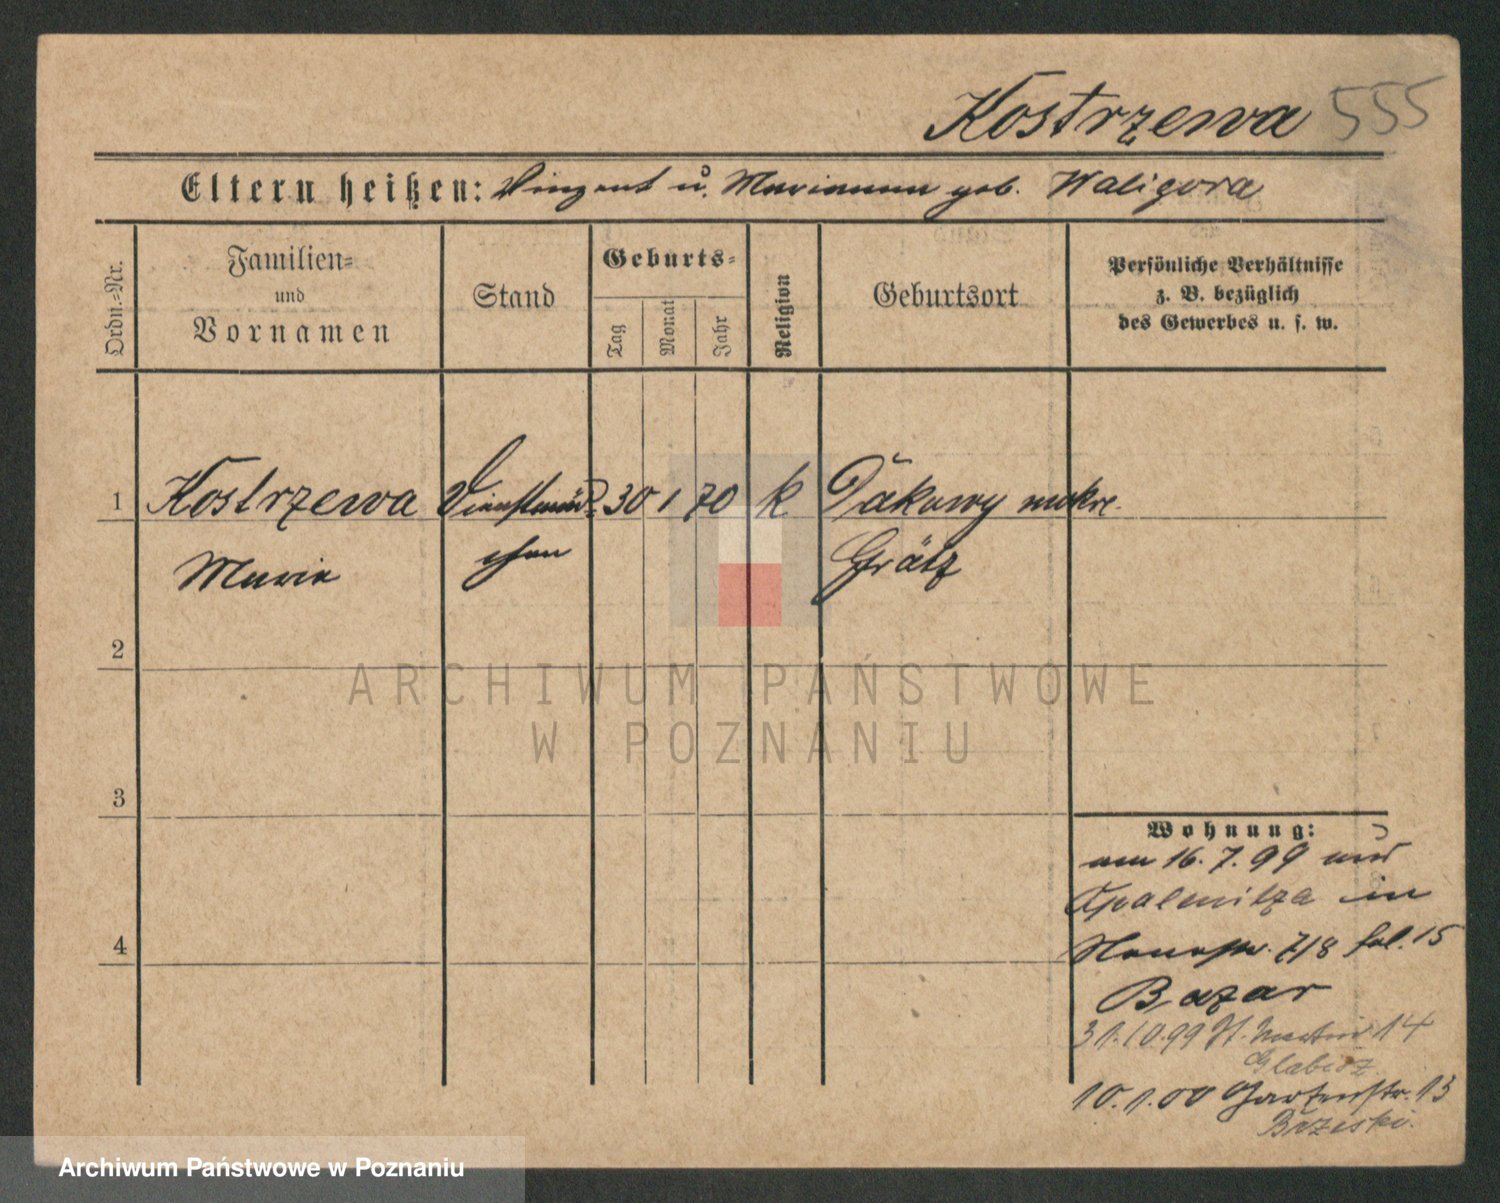 Kostrzewa 555
Eltern heißen: Vinzent u. Marianna geb. Waligora
Ordn.-Nr.
Familien-
und
Vornamen
Stand
Geburts-
Tag
Monat
Jahr
Religion
Geburtsort
Persönliche Verhältnisse
z. B. bezüglich
des Gewerbes u. s. w.
1 Kostrzewa Dienstmäd- 30 1 70 k Ptakowy
Marie chen Grätz
2
3
4
Wohnung:
am 16. 7. 99 aus
Opalenitza in
7/8 fol. 15
Bazar
31.10.99 St. Martin 14
Glabisz
10.1.00 Gartenstr. 13
Brzeski.
ARCHIWUM PAŃSTWOWE
W POZNANIU
Archiwum Państwowe w Poznaniu